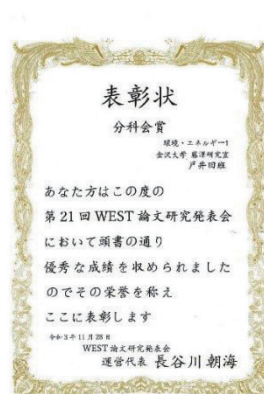 表彰状
分科会賞
環境・エネルギー1
金沢大学 藤澤研究室
戸井田班
あなた方はこの度の
第21回WEST論文研究発表会
において頭書の通り
優秀な成績を収められました
のでその栄誉を称え
ここに表彰します
令和3年11月28日
WEST論文研究発表会
運営代表 長谷川朝海